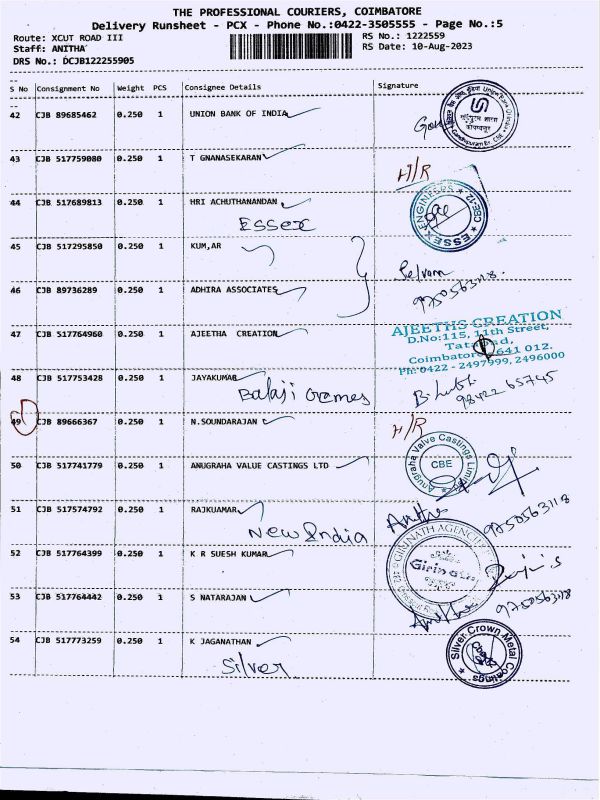 THE PROFESSIONAL COURIERS, COIMBATORE
Delivery Runsheet - PCX - Phone No.:0422-3505555 - Page No.:5
Route: XCUT ROAD III
RS No.: 1222559
Staff: ANITHA
RS Date: 10-Aug-2023
DRS No.: DCJB122255905
S No Consignment No Weight PCS Consignee Details Signature
42 CJB 89685462 0.250 1 UNION BANK OF INDIA
43 CJB 517759080 0.250 1 T GNANASEKARAN
H/R
44 CJB 517689813 0.250 1 HRI ACHUTHANANDAN
ESSEX
ESSEX ENGINEERS * CBE-12 *
45 CJB 517295850 0.250 1 KUM,AR
Selvam
9750563118
46 CJB 89736289 0.250 1 ADHIRA ASSOCIATES
47 CJB 517764960 0.250 1 AJEETHA CREATION
AJEETHS CREATION
D.No:115, 11th Street,
Coimbatore 641 012.
Ph: 0422 - 2497999, 2496000
48 CJB 517753428 0.250 1 JAYAKUMAR
Balaji
98422 65745
49 CJB 89666367 0.250 1 N.SOUNDARAJAN
H/R
50 CJB 517741779 0.250 1 ANUGRAHA VALUE CASTINGS LTD
Anugraha Valve Castings Limited
CBE
51 CJB 517574792 0.250 1 RAJKUAMAR
New India
9750563118
52 CJB 517764399 0.250 1 K R SUESH KUMAR
53 CJB 517764442 0.250 1 S NATARAJAN
9750563118
54 CJB 517773259 0.250 1 K JAGANATHAN
Silver
Silver Crown Metal Coatings